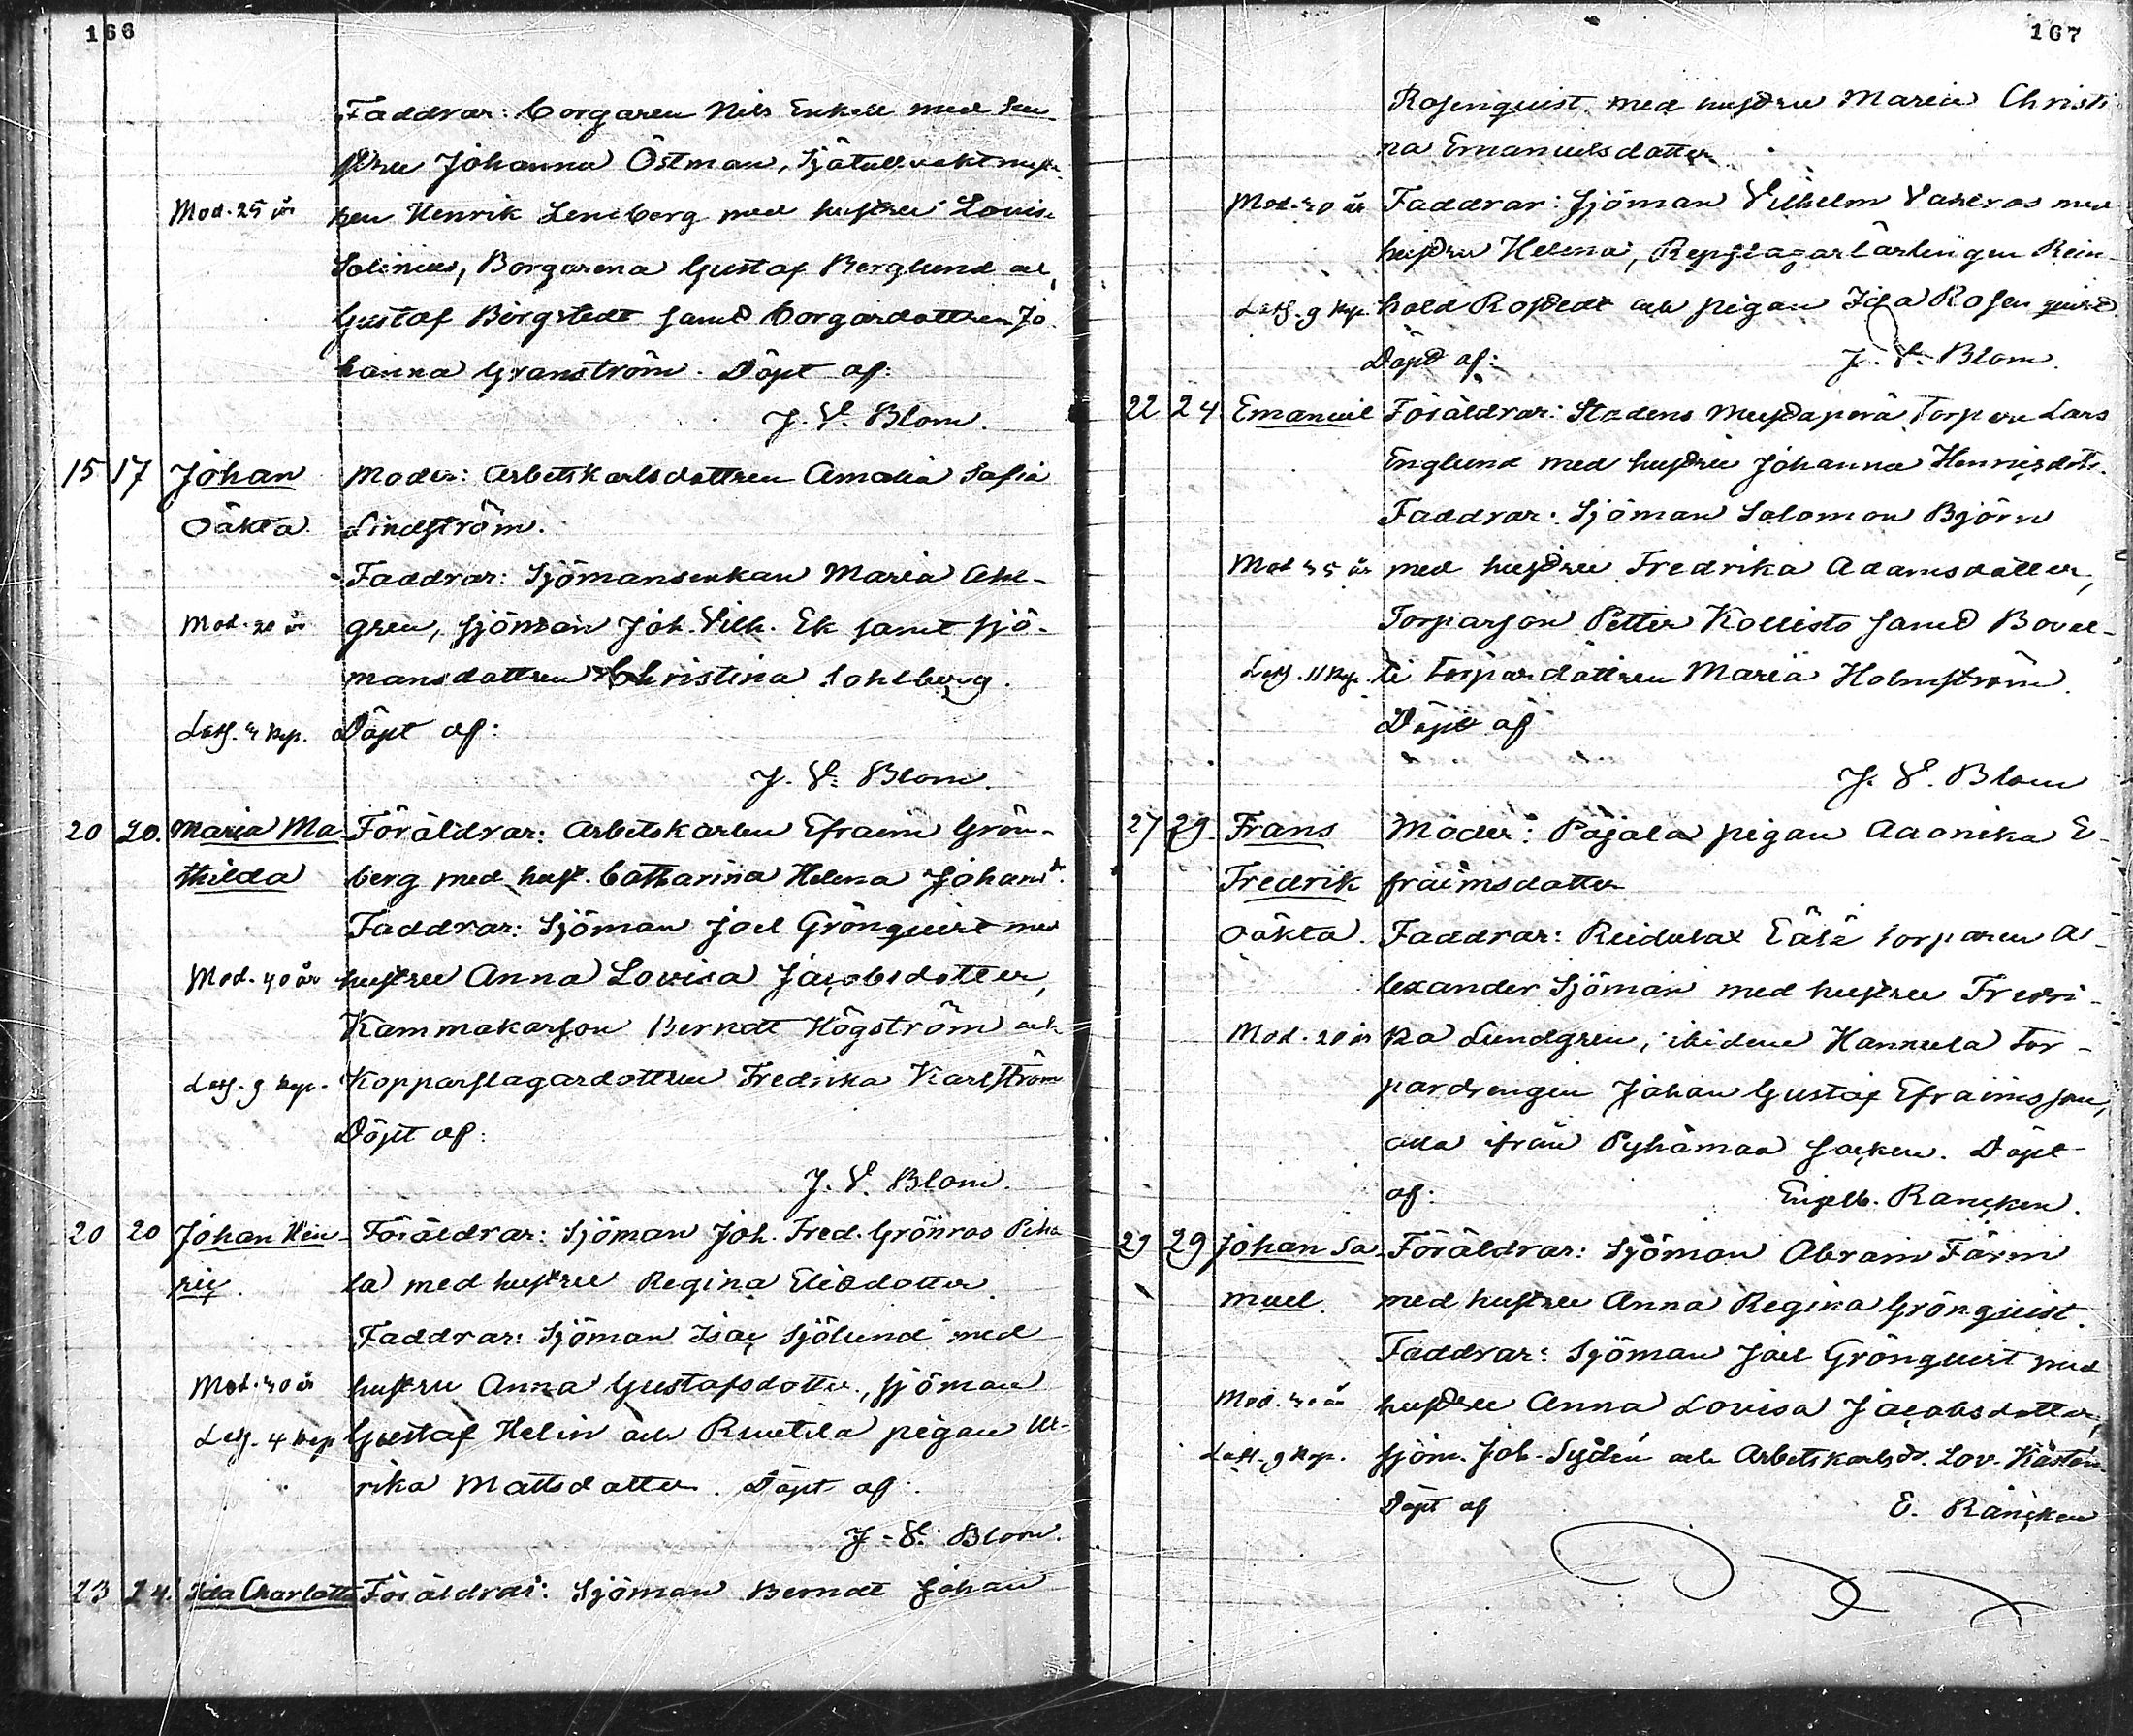 166
Faddrar: Borgaren Nils Enkell med hu-
stru Johanna Östman, Sjötullvaktmäst
Mod. 25 år
ren Henrik Lindberg med hustru Lovisa
Solenius, Borgarena Gustaf Berglund och
Gustaf Bergstedt samt borgardottren Jo
hanna Granström. Döpt af:
J. V. Blom.
15 17 Johan
Moder: Arbetskarlsdottren Amalia Sofia
oäkta
Lindström.
Faddrar: Sjömansenkan Maria Ahl-
Mod. 20 år
gren, sjöman Joh. Vilh. Ek samt sjö-
mansdottren Christina Sohlberg.
Döpt af:
J. V. Blom.
20 20. Maria Ma-
Föräldrar: Arbetskarlen Efraim Grön-
thilda
berg med hust. Catharina Helena Johansd.
Faddrar: Sjöman Joel Grönquist med
Mod. 40 år
hustru Anna Lovisa Jacobsdotter,
Kammakarson Berndt Högström och
Kopparslagardottren Fredrika Karlström
Döpt af:
J. V. Blom.
20 20 Johan Hen-
Föräldrar: Sjöman Joh. Fred. Grönros Piha
ric.
la med hustru Regina Elisdotter.
Faddrar: Sjöman Isac Sjölund med
Mod. 30 år
hustru Anna Gustafsdotter, sjöman
Gustaf Helin och Ruutila pigan Ul-
rika Mattsdotter. Döpt af:
J. V. Blom.
23 24. Ida Charlotta
Föräldrar: Sjöman Berndt Johan
167
Rosenquist med hustru Maria Christi
na Emanuelsdotter.
Mod. 30 år
Faddrar: Sjöman Vilhelm Vahlros med
hustru Helena, Repslagarlärlingen Rein-
hold Rostedt och pigan Ida Rosenquist
Döpt af:
J. V. Blom.
22 24. Emanuel
Föräldrar: Stadens Mustaperä Torpare Lars
Englund med hustru Johanna Henricsdotr.
Faddrar: Sjöman Salomon Björn
Mod 35 år
med hustru Fredrika Adamsdotter,
Torparson Petter Kollisto samt
torpardottren Maria Holmström.
Döpt af
J. V. Blom
27 29. Frans
Moder: Pajala pigan Adonika E-
Fredrik
fraimsdotter
oäkta.
Faddrar: Reidulax torparen A-
lexander Sjöman med hustru Fredri-
Mod. 20 år
ka Lundgren, ibidem Hannula Tor-
pardrengen Johan Gustaf Efraimsson,
alla ifrån Pyhämaa socken. Döpt
af:
Engelb. Rancken.
29 29 Johan Sa-
Föräldrar: Sjöman Abram Färm
muel.
med hustru Anna Regina Grönquist.
Faddrar: Sjöman Joel Grönquist med
hustru Anna Lovisa Jacobsdotter,
sjöm. Joh. Sydén och Arbetskarlsdr. Lov. Kästén
Döpt af
E. Rancken